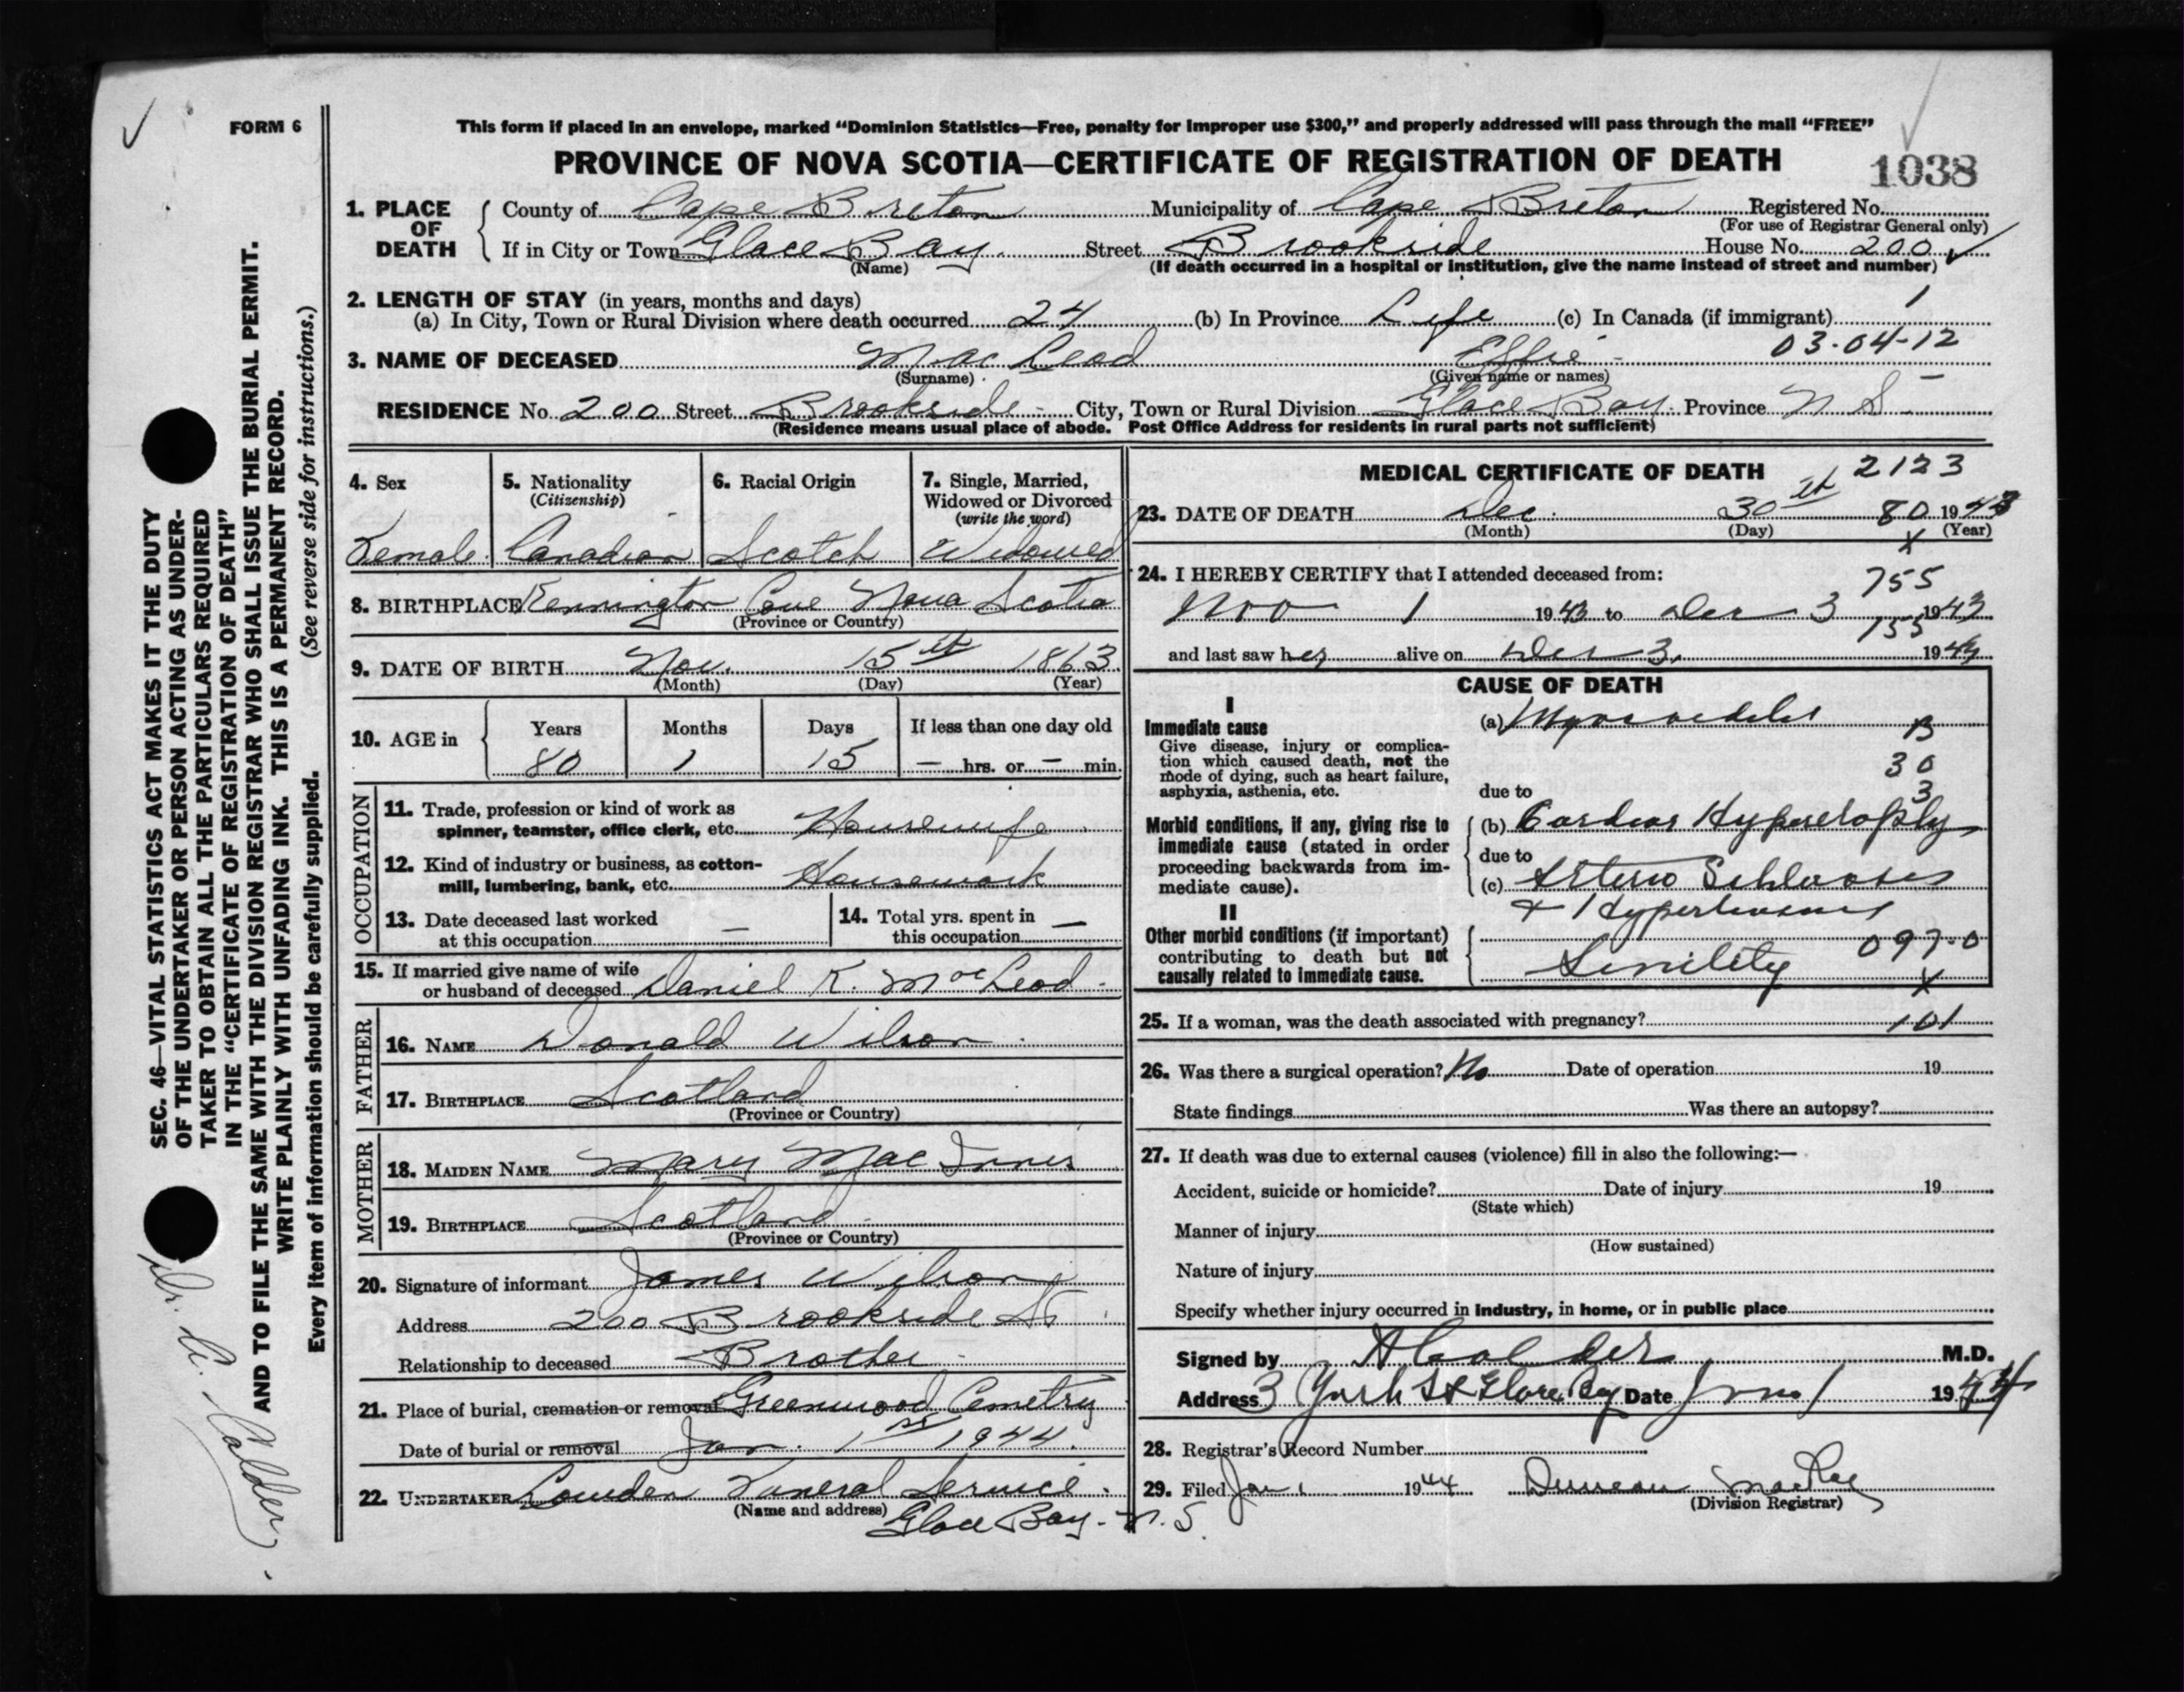 FORM 6
This form if placed in an envelope, marked “Dominion Statistics—Free, penalty for improper use $300,” and properly addressed will pass through the mail “FREE”
PROVINCE OF NOVA SCOTIA—CERTIFICATE OF REGISTRATION OF DEATH 1038
1. PLACE OF DEATH County of Cape Breton Municipality of Cape Breton Registered No.
(For use of Registrar General only)
If in City or Town Glace Bay. Street Brookside House No. 200
(Name) (If death occurred in a hospital or institution, give the name instead of street and number)
2. LENGTH OF STAY (in years, months and days) 1
(a) In City, Town or Rural Division where death occurred 24 (b) In Province Life (c) In Canada (if immigrant)
03-04-12
3. NAME OF DECEASED Mac Leod Effie
(Surname) (Given name or names)
RESIDENCE No. 200 Street Brookside City, Town or Rural Division Glace Bay. Province N S
(Residence means usual place of abode. Post Office Address for residents in rural parts not sufficient)
4. Sex 5. Nationality (Citizenship) 6. Racial Origin 7. Single, Married, Widowed or Divorced (write the word)
Female Canadian Scotch Widowed
8. BIRTHPLACE Kennington Cove Nova Scotia
(Province or Country)
9. DATE OF BIRTH Nov. 15th 1863
(Month) (Day) (Year)
10. AGE in Years Months Days If less than one day old
80 1 15 — hrs. or — min.
OCCUPATION
11. Trade, profession or kind of work as
spinner, teamster, office clerk, etc. Housewife
12. Kind of industry or business, as cotton-
mill, lumbering, bank, etc. Housework
13. Date deceased last worked
at this occupation —
14. Total yrs. spent in
this occupation —
15. If married give name of wife
or husband of deceased Daniel K. MacLeod
FATHER
16. NAME Donald Wilson
17. BIRTHPLACE Scotland
(Province or Country)
MOTHER
18. MAIDEN NAME Mary Mac Innis
19. BIRTHPLACE Scotland
(Province or Country)
20. Signature of informant James Wilson
Address 200 Brookside St
Relationship to deceased Brother
21. Place of burial, cremation or removal Greenwood Cemetry
Date of burial or removal Jan. 1st 1944.
22. UNDERTAKER Lowden Funeral Service.
(Name and address) Glace Bay. N.S.
MEDICAL CERTIFICATE OF DEATH 2123
23. DATE OF DEATH Dec. 30th 80 1943
(Month) (Day) (Year)
x
24. I HEREBY CERTIFY that I attended deceased from: 755
Nov 1 1943 to Dec 3 1943
155
and last saw her alive on Dec 3, 1943
CAUSE OF DEATH
I
Immediate cause (a) Myocarditis
Give disease, injury or complica-
tion which caused death, not the
mode of dying, such as heart failure,
asphyxia, asthenia, etc. due to
B
30
3
Morbid conditions, if any, giving rise to
immediate cause (stated in order
proceeding backwards from im-
mediate cause).
(b) Cardiac Hypertrophy
due to
(c) Arterio Schlerosis
+ Hypertension
II
Other morbid conditions (if important)
contributing to death but not
causally related to immediate cause.
097-0
Senility
x
25. If a woman, was the death associated with pregnancy? 101
26. Was there a surgical operation? No Date of operation 19
State findings Was there an autopsy?
27. If death was due to external causes (violence) fill in also the following:—
Accident, suicide or homicide? Date of injury 19
(State which)
Manner of injury
(How sustained)
Nature of injury
Specify whether injury occurred in industry, in home, or in public place
Signed by A Calder M.D.
Address 3 York St Glace Bay Date Jan 1 1944
28. Registrar's Record Number
29. Filed Jan 1 1944 Duncan MacRae
(Division Registrar)
SEC. 46—VITAL STATISTICS ACT MAKES IT THE DUTY
OF THE UNDERTAKER OR PERSON ACTING AS UNDER-
TAKER TO OBTAIN ALL THE PARTICULARS REQUIRED
IN THE “CERTIFICATE OF REGISTRATION OF DEATH”
AND TO FILE THE SAME WITH THE DIVISION REGISTRAR WHO SHALL ISSUE THE BURIAL PERMIT.
WRITE PLAINLY WITH UNFADING INK. THIS IS A PERMANENT RECORD.
Every item of information should be carefully supplied. (See reverse side for instructions.)
Dr. A. Calder